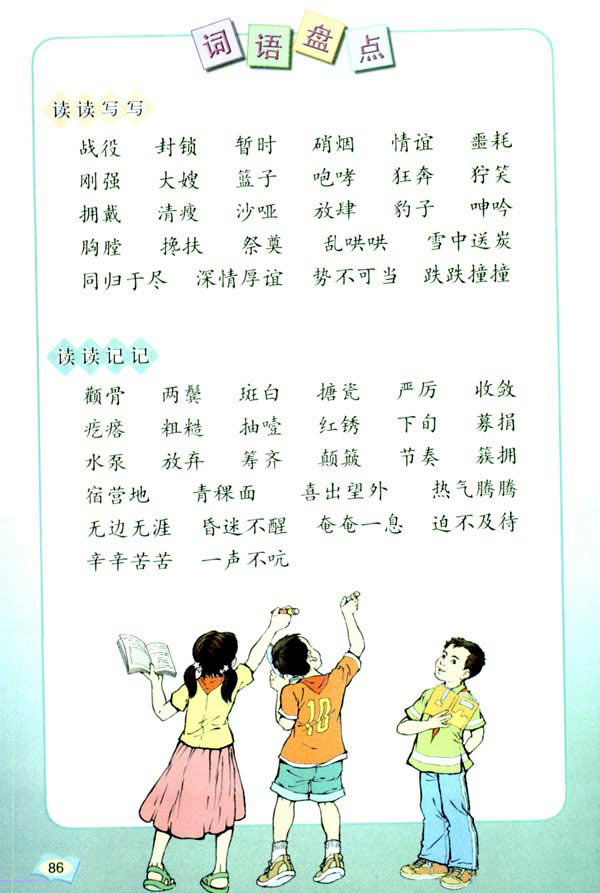 词语盘点
读读写写
战役 封锁 暂时 硝烟 情谊 噩耗
刚强 大嫂 篮子 咆哮 狂奔 狞笑
拥戴 清瘦 沙哑 放肆 豹子 呻吟
胸膛 搀扶 祭奠 乱哄哄 雪中送炭
同归于尽 深情厚谊 势不可当 跌跌撞撞
读读记记
颧骨 两鬓 斑白 搪瓷 严厉 收敛
疙瘩 粗糙 抽噎 红锈 下旬 募捐
水泵 放弃 筹齐 颠簸 节奏 簇拥
宿营地 青稞面 喜出望外 热气腾腾
无边无涯 昏迷不醒 奄奄一息 迫不及待
辛辛苦苦 一声不吭
10
86